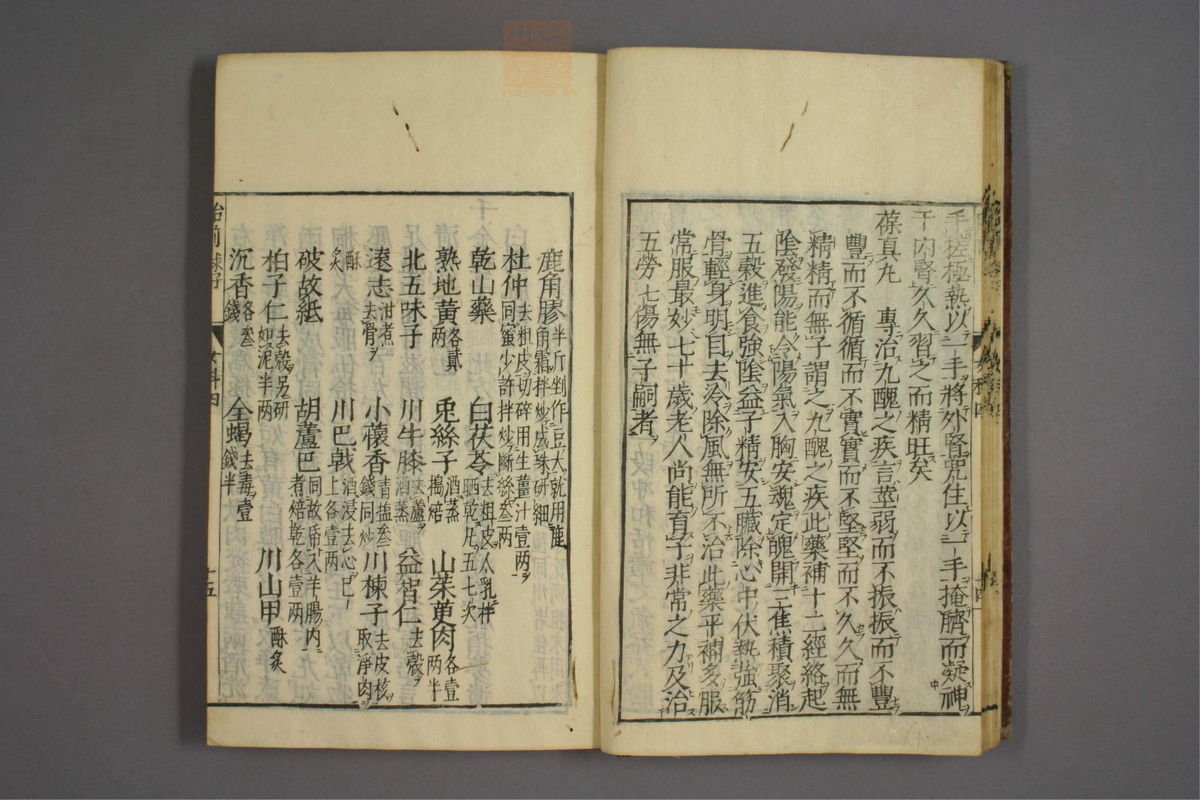 手搓極熱以一手將外腎兜住以一手掩臍而凝神
于内腎久久習之而精旺矣
葆真丸　專治九醜之疾言莖弱而不振振而不豐
豐而不循循而不實實而不堅堅而不久久而無
精精而無子謂之九醜之疾此藥補十二經絡起
陰發陽能令陽氣入胸安魂定魄開三焦積聚消
五穀進食強陰益子精安五臟除心中伏熱強筋
骨輕身明目去冷除風無所不治此藥平補多服
常服最妙七十歲老人尚能育子非常之力及治
五勞七傷無子嗣者
鹿角膠半斤剉作豆大就用鹿角霜拌炒成珠研細
杜仲去粗皮切碎用生薑汁壹兩同蜜少許拌炒斷絲叁兩
乾山藥　白茯苓去粗皮人乳拌晒乾凡五七次
熟地黃各貳兩　兎絲子酒蒸搗焙　山茱萸肉各壹兩半
北五味子　川牛膝去蘆酒蒸　益智仁去穀
遠志甘煮去骨　小蘹香青塩叁錢同炒　川楝子取淨肉去皮核
酥炙　川巴戟酒浸去心已上各壹兩
破故紙　胡蘆巴同故帋入羊腸内煮焙乾各壹兩
柏子仁去穀另研如泥半兩　川山甲酥炙
沉香各叁錢　全蝎去毒壹錢半
女科四
十五